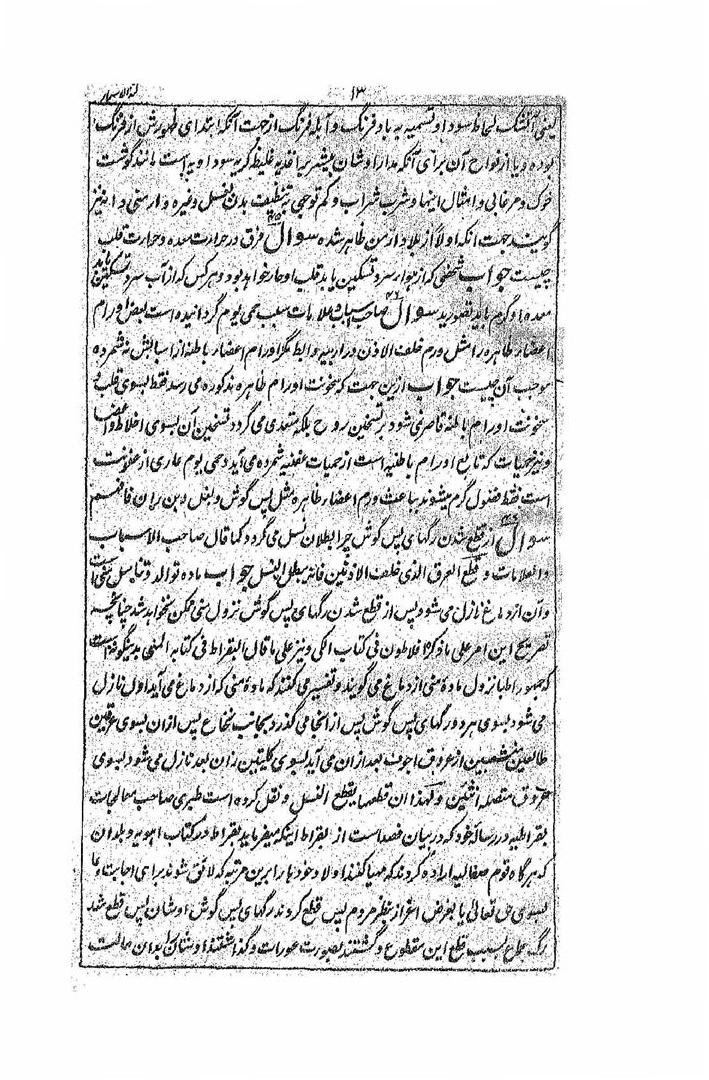 ۱۳
یعنی آتشک لحاظ سودا و تسمیه به باد فرنگ و آبله فرنگ از جهت آنکه ابتدای ظهورش از فرنگ
بوده و یا از نواح آن برای آنکه مدار اوشان بیشتر بر اغذیه غلیظ کریه سوداویه است مانند گوشت
خوک و مرغابی و امثال اینها و شرب شراب و کم توجهی به تنظیف بدن بغسل وغیره و ارمنی دانه نیز
گویند جهت آنکه اولاً از بلاد ارمن ظاهر شده سوال فرق در حرارت معده و حرارت قلب
چیست جواب شخصی که از هوای سرد تسکین یابد قلب او حار خواهد بود و هر کس که از آب سرد تسکین یابد
معده او گرم باید تصورید سوال صاحب اسباب و علامات سبب حمی یوم گردانیده است بعض اورام
اعضاء ظاهره را مثل ورم خلف الاذن و اربیه و ابط مگر اورام اعضاء باطنه از اسبابش نشمرده
موجب آن چیست جواب ازین جهت که سخونت اورام ظاهره مذکوره می رسد فقط بسوی قلب و
سخونت اورام باطنه قاصر نمی شود بر تسخین روح بلکه متعدی می گردد تسخین آن بسوی اخلاط و اعضا
و نیز حمیات که تابع اورام باطنیه است از حمیات عفنیه شمرده می آید و حمی یوم عاری از عفونت
است فقط فضول گرم میشوند بباعث ورم اعضاء ظاهره مثل پس گوش و بغل و بن ران فافهم
سوال از قطع شدن رگهای پس گوش چرا بطلان نسل می گردد کما قال صاحب الاسباب
والعلامات و قطع العرق الذی خلف الاذنین فانه یبطل النسل جواب ماده توالد و تناسل منی است
و آن از دماغ نازل می شود پس از قطع شدن رگهای پس گوش نزول منی ممکن نخواهد شد چنانچه
تصریح این امر علی ما ذکر افلاطون فی کتاب الکی و نیز علی ما قال البقراط فی کتابه المنی بدینگونه است
که جمهور اطبا نزول ماده منی از دماغ می گویند و تفسیر می کنند که ماده منی که از دماغ می آید اول نازل
می شود بسوی هر دو رگهای پس گوش پس از انجا می گذرد بجانب نخاع پس ازان بسوی عرقین
طالعین متشعبین از عروق اجوف بعد ازان می آید بسوی کلیتین زان بعد نازل می شود بسوی
عروق متصله انثیین و لهذا ان قطعها یقطع النسل و نقل کرده است طبری صاحب معالجات
بقراطیه در رساله خود که در بیان فصد است از بقراط اینکه میفرماید بقراط در کتاب اهویه و بلدان
که هر گاه قوم صقالیه اراده کردند که مهیا کنند اولاد خود ها را برین مرتبه که لائق شوند برای اجابت دعا
بسوی حق تعالی یا بعرض اغراز نظر مردم پس قطع کردند رگهای پس گوش اوشان پس قطع شد
رگ جماع بسبب قطع این مقطوع و گشتند بصورت عورات و گذاشتند اوشان بران حالت